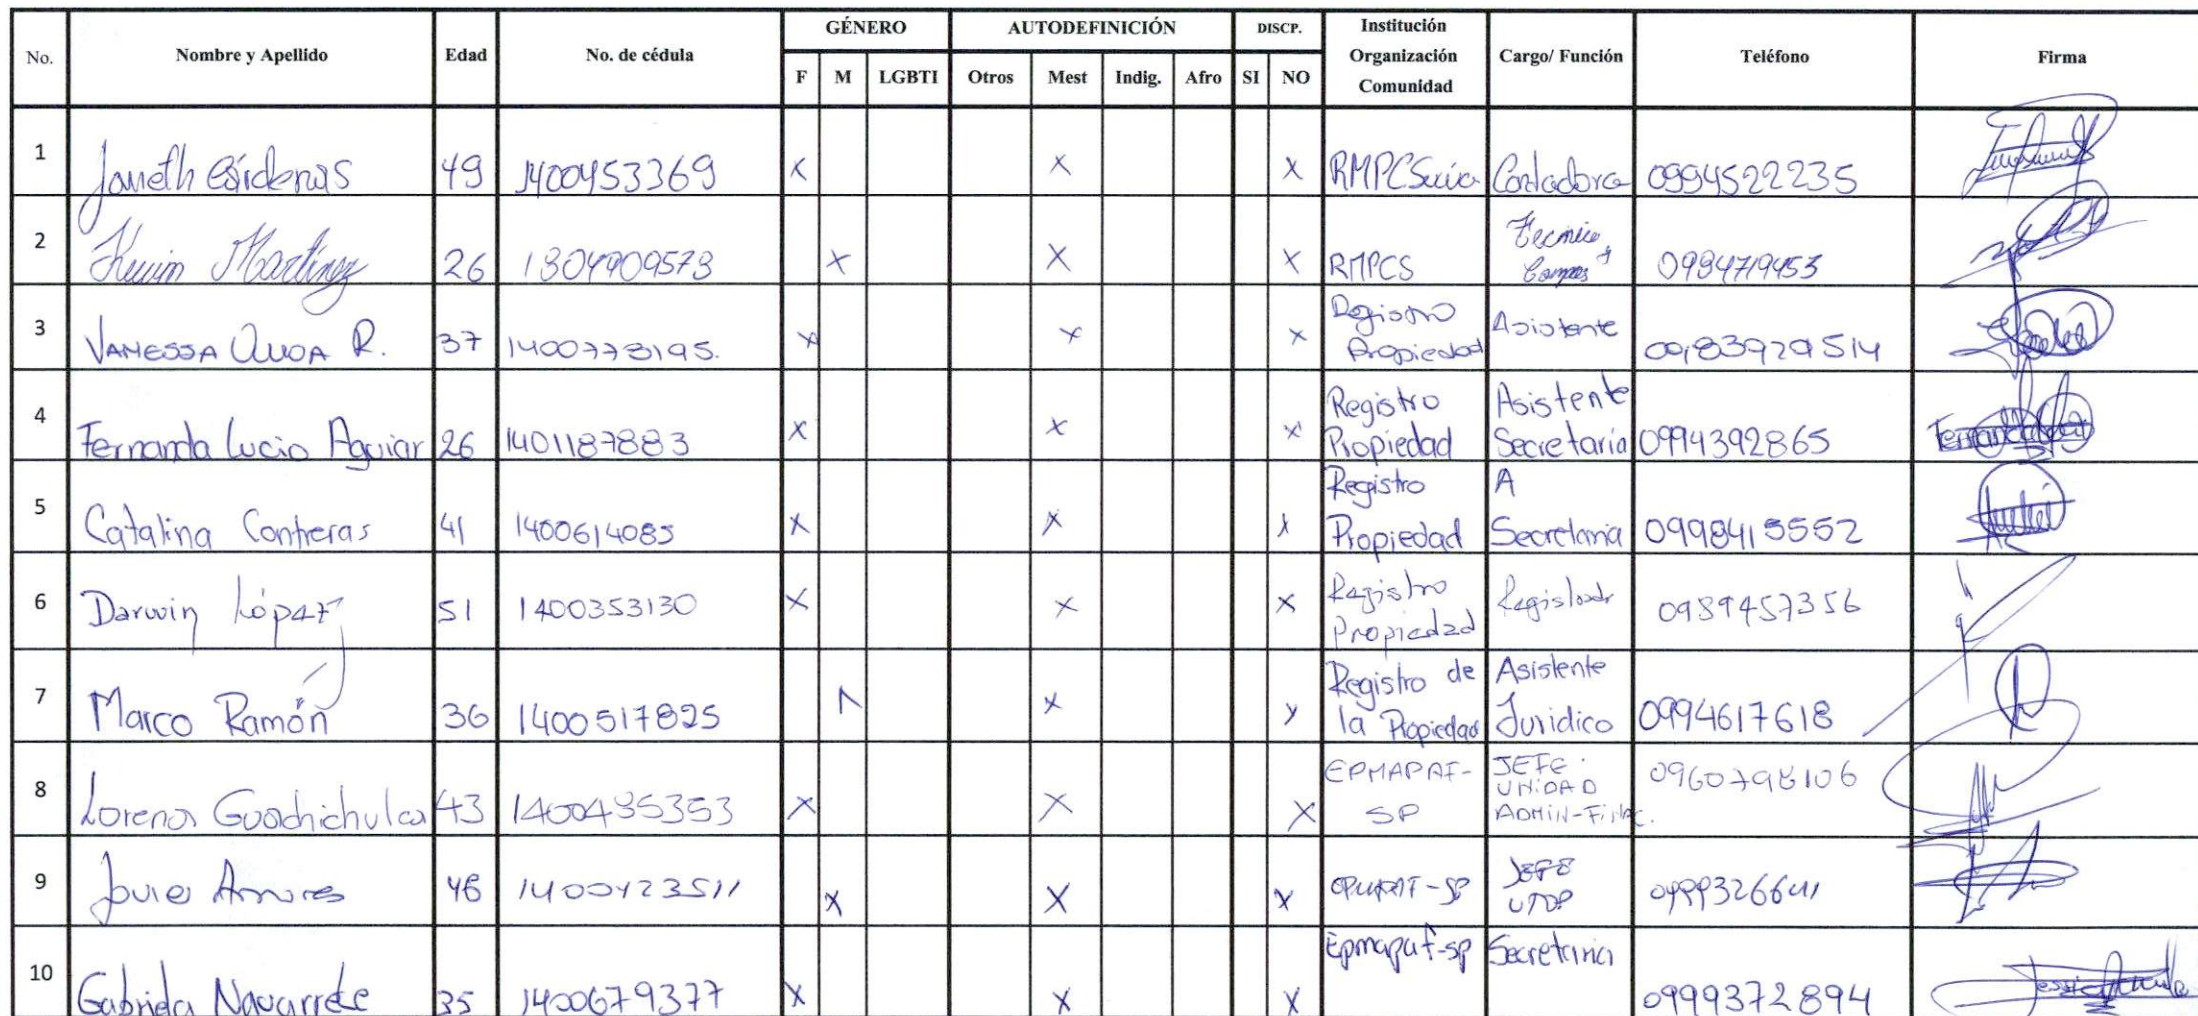 No. Nombre y Apellido Edad No. de cédula GÉNERO AUTODEFINICIÓN DISCP. Institución Organización Comunidad Cargo/ Función Teléfono Firma
F M LGBTI Otros Mest Indig. Afro SI NO
1 Janeth Cárdenas 49 1400453369 X X X RMPCSucúa Contadora 0994522235
2 Kevin Martinez 26 1304909573 X X X RMPCS Tecnico Campo 0984719453
3 VANESSA R. 37 1400773195. X X X Registro Propiedad Asistente 0983929514
4 Fernanda Lucio Aguiar 26 1401187883 X X X Registro Propiedad Asistente Secretaría 0994392865
5 Catalina Contreras 41 1400614085 X X X Registro Propiedad A Secretaria 0998415552
6 Darwin López 51 1400353130 X X X Registro Propiedad Registrador 0989457356
7 Marco Ramón 36 1400517825 X X Registro de la Propiedad Asistente Jurídico 0994617618
8 Lorena Guachichulca 43 1400435353 X X X EPMAPAF-SP JEFE UNIDAD ADMIN-FINAC. 0960798106
9 46 1400423511 X X X JEFE
10 Gabriela Navarrete 35 1400679377 X X X Epmapaf-sp Secretaria 0999372894